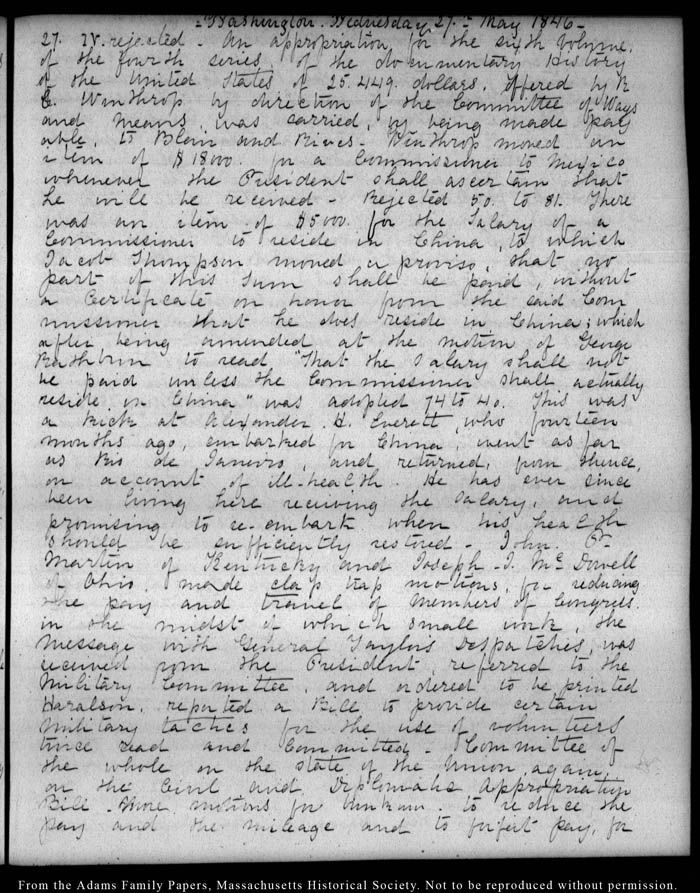 Washington. Wednesday 27th May 1846 —
27. IV. rejected — An appropriation for the sixth volume,
of the fourth series, of the documentary History
of the United States of 25.449. dollars, offered by R
C. Winthrop by direction of the Committee of Ways
and means, was carried, by being made pay
able, to Blair and Rives — Winthrop moved an
item of $18000. for a Commissioner to Mexico
whenever the President shall ascertain that
he will be received — Rejected 50. to 81. There
was an item of $5000. for the Salary of a
Commissioner to reside in China, to which
Jacob Thompson moved a proviso, that no
part of this sum shall be paid, without
a Certificate on honor from the said Com
missioner that he does reside in China; which
after being amended at the motion of George
Rathbun to read "That the Salary shall not
be paid unless the Commissioner shall actually
reside in China" was adopted 74 to 40. This was
a kick at Alexander. H. Everett, who fourteen
months ago, embarked for China, went as far
as Rio de Janeiro, and returned, from thence,
on account of ill-health. He has ever since
been living here receiving the Salary, and
promising to re-embark when his health
should be sufficiently restored — John. P.
Martin of Kentucky and Joseph. J. McDowell
of Ohio. made clap trap motions, for reducing
the pay and travel of members of Congress.
in the midst of which small work, the
message with General Taylor's Despatches, was
received from the President, referred to the
Military Committee, and ordered to be printed
Haralson, reported a Bill to provide certain
military tactics for the use of volunteers
twice read and Committed — Committee of
the whole on the state of the Union again,
on the Civil and Diplomatic Appropriation
Bill — More motions for to reduce the
pay and the mileage and to forfeit pay, for
From the Adams Family Papers, Massachusetts Historical Society. Not to be reproduced without permission.